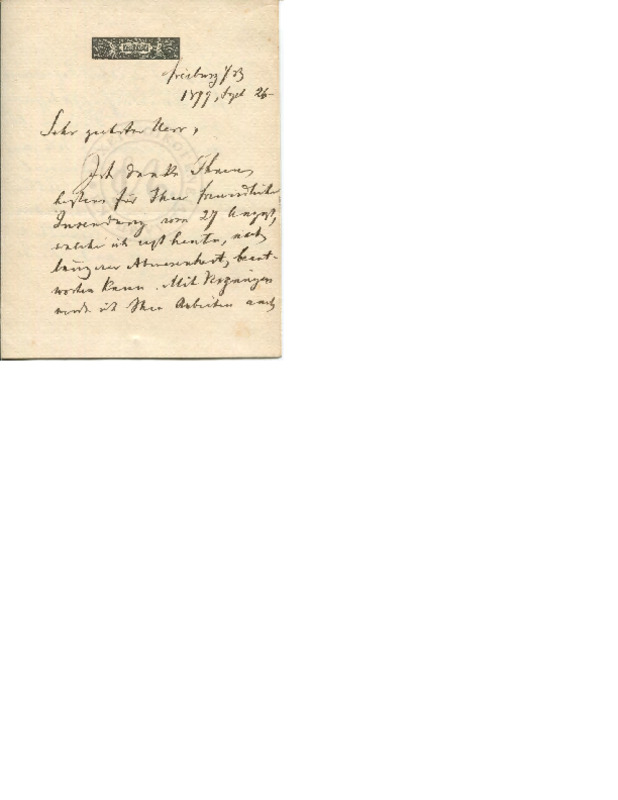 Freiburg i/B
1899, Sept 26
Sehr geehrter Herr,
Ich danke Ihnen
bestens für Ihre freundliche
Zusendung vom 27 August,
welche ich erst heute, nach
längerer Abwesenheit, beant-
worten kann. Mit Vergnügen
werde ich Ihre Arbeiten nach